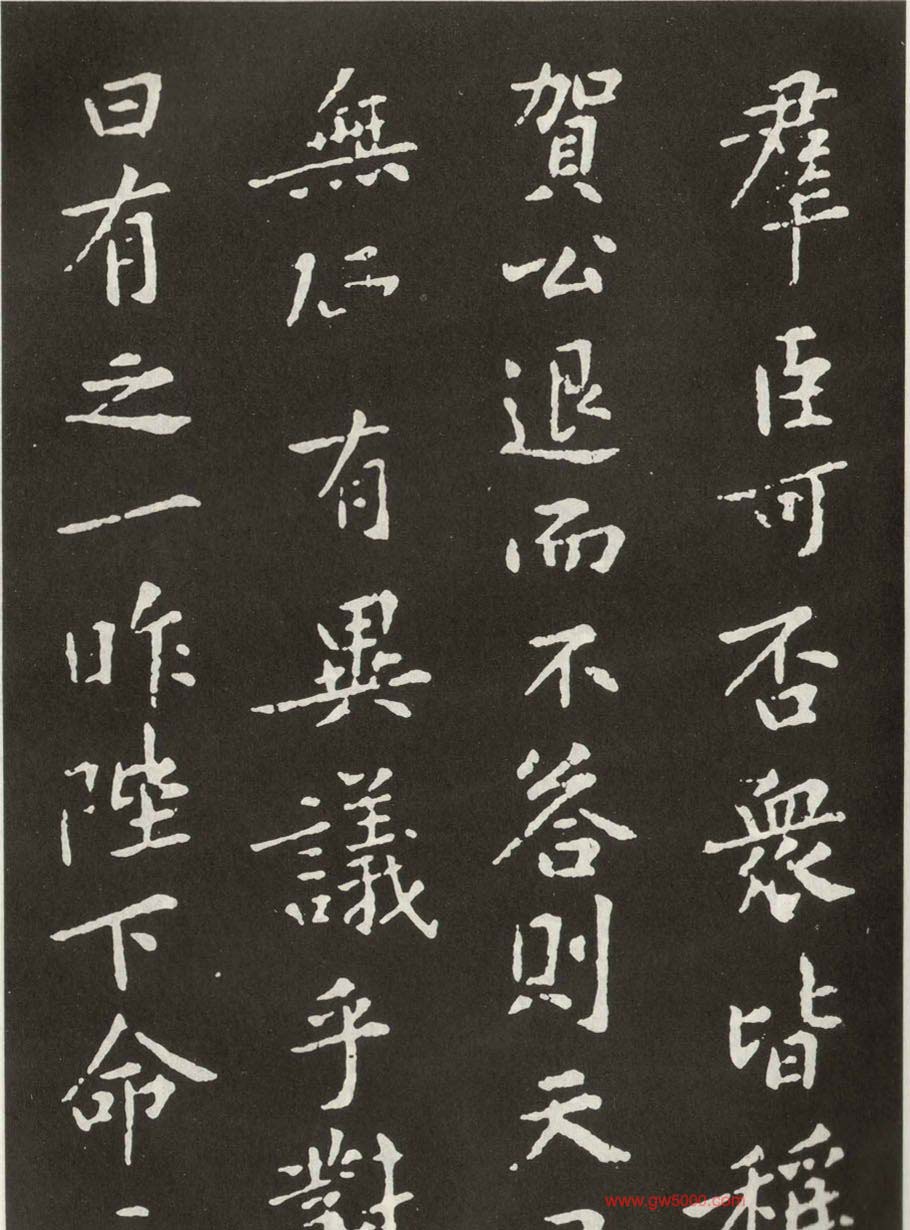 羣臣可否衆皆稱
賀公退而不答則天
無𠨧有異議乎對
曰有之一昨陛下命
www.gw5000.com